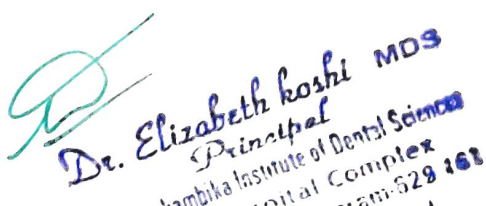 Dr. Elizabeth koshi MDS
Principal
kambika Institute of Dental Sciences
ital Complex
am-629 161